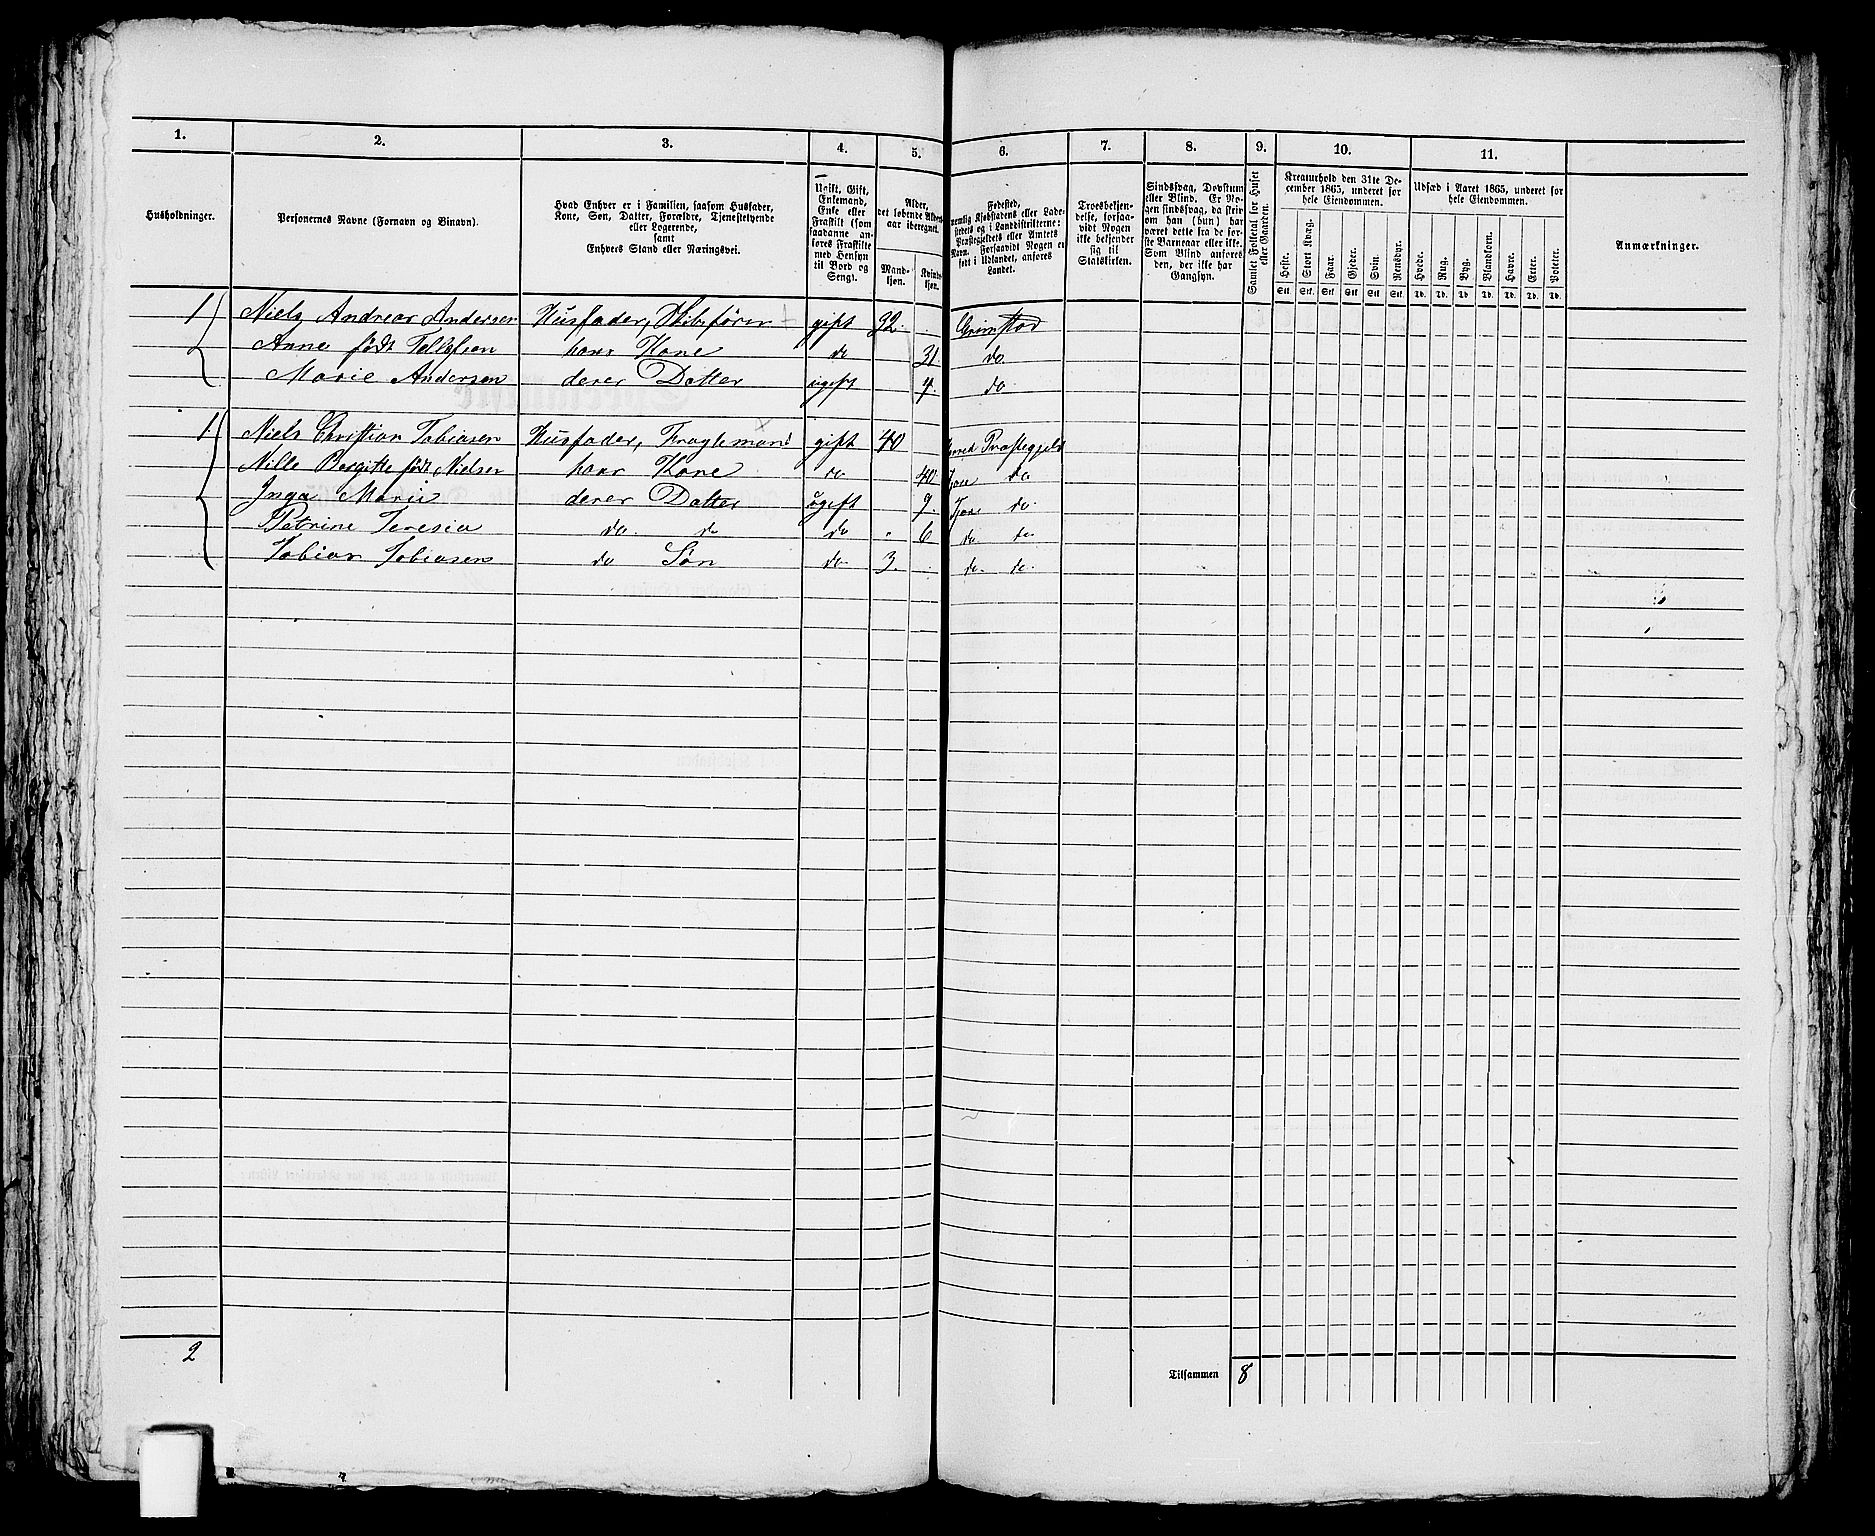 1. 2. 3. 4. 5. 6. 7. 8. 9. 10. 11.
Husholdninger.
Personernes Navne (Fornavn og Binavn).
Hvad Enhver er i Familien, saasom Husfader,
Kone, Søn, Datter, Forældre, Tjenestetyende
eller Logerende,
samt
Enhvers Stand eller Næringsvei.
Ugift, Gift,
Enkemand,
Enke eller
Fraskilt (som
saadanne an-
føres Fraskilte
med Hensyn
til Bord og
Seng).
Alder,
det løbende Alders-
aar iberegnet.
Mand-
kjøn.
Kvinde-
kjøn.
Fødested,
nemlig Kjøbstadens eller Lade-
stedets og i Landdistrikterne:
Præstegjeldets eller Amtets
Navn. Forsaavidt Nogen er
født i Udlandet, anføres
Landet.
Troesbekjen-
delse, forsaa-
vidt Nogen
ikke bekjender
sig til
Statskirken.
Sindssvag, Døvstum
eller Blind. Er No-
gen sindssvag, da skriv
om han (hun) har
været dette fra de før-
ste Barneaar eller ikke.
Som Blind anføres
den, der ikke har
Gangsyn.
Samlet Folketal for Huset
eller Gaarden.
Kreaturhold den 31te De-
cember 1865, underet for
hele Eiendommen.
Heste. Stort Kvæg. Faar. Gjeder. Svin. Rensdyr.
Stk. Stk. Stk. Stk. Stk. Stk.
Udsæd i Aaret 1865, underet for
hele Eiendommen.
Hvede. Rug. Byg. Blandkorn. Havre. Erter. Poteter.
Td. Td. Td. Td. Td. Td. Td.
Anmærkninger.
1 Niels Andreas Andersen Husfader, Skibsfører gift 32. Grimstad
Anne født Tellefsen hans Kone do 31 do
Marie Andersen deres Datter ugift 4. do
1 Niels Christian Tobiasen Husfader, Fragtemand gift 40 Præstegjeld
Nille Bergitte født Nielsen hans Kone do 40 do
Inga Marie deres Datter ugift 9. do
Petrine Teresia do do do 6 do do
Tobias Tobiasen do Søn do 3. do. do.
2 Tilsammen 8